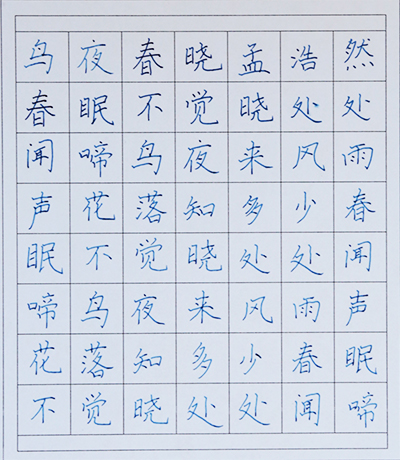 鸟夜春晓孟浩然
春眠不觉晓处处
闻啼鸟夜来风雨
声花落知多少春
眠不觉晓处处闻
啼鸟夜来风雨声
花落知多少春眠
不觉晓处处闻啼